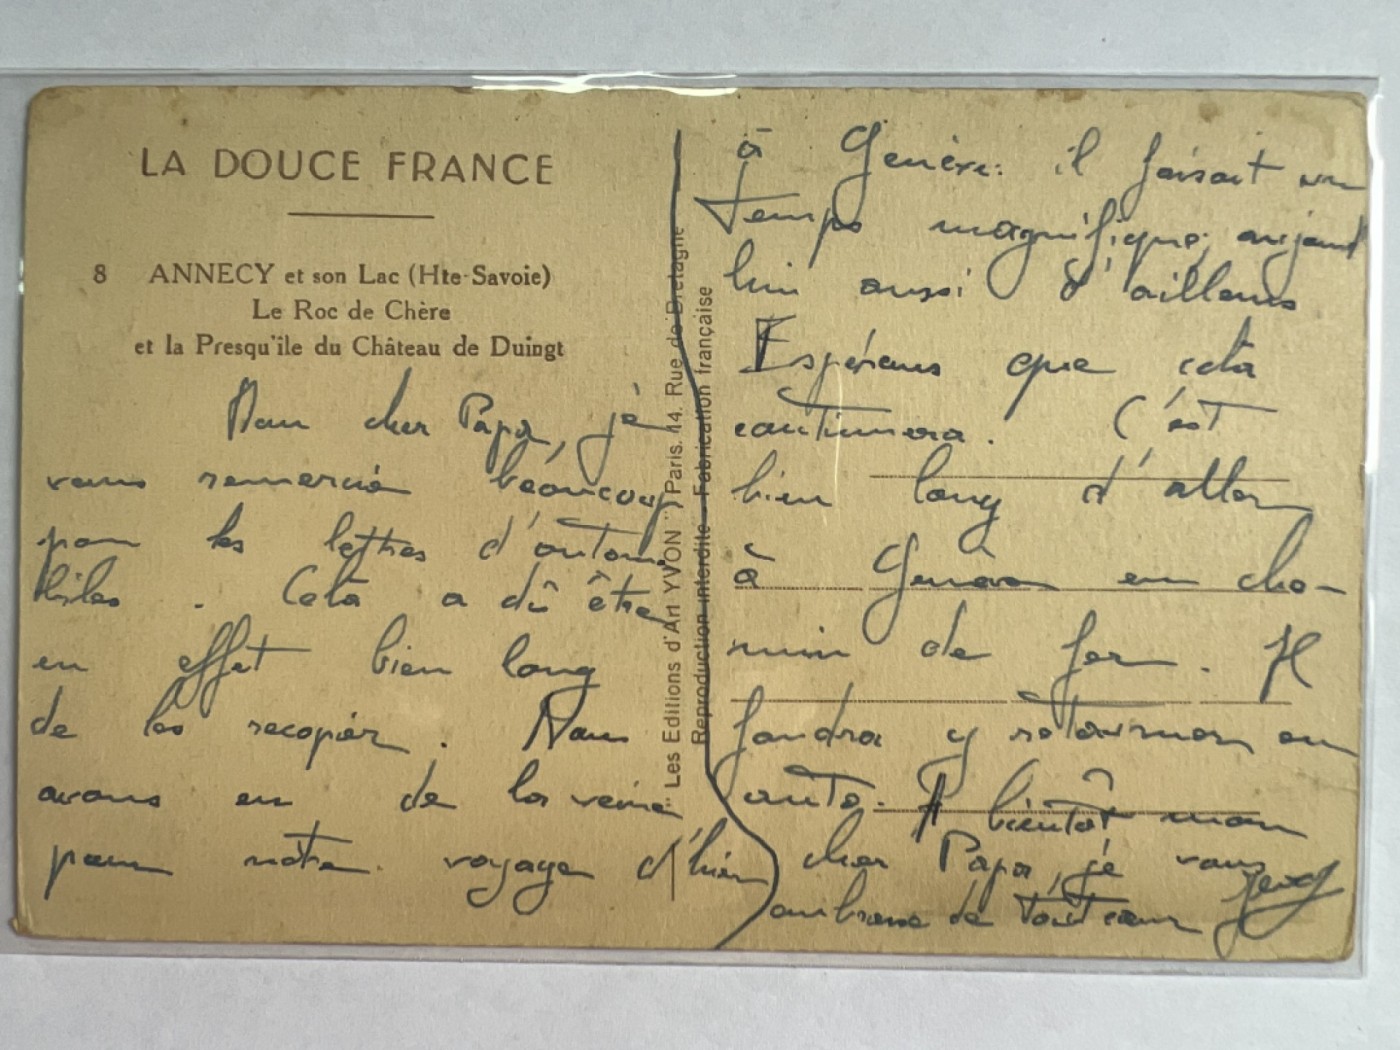 LA DOUCE FRANCE
8 ANNECY et son Lac (Hte-Savoie)
Le Roc de Chère
et la Presqu'ile du Château de Duingt
Mon cher Papa, je
vous remercie beaucoup
pour les lettres d'automo
biles. Cela a dû être
en effet bien long
de les recopier. Nous
avons eu de la veine
pour notre voyage d'hier
"Les Editions d'Art YVON" Paris. 14. Rue de Bretagne
Reproduction interdite - Fabrication française
à Genève: il faisait un
temps magnifique; aujourd
hui aussi d'ailleurs
Espérons que cela
continuera. C'est
bien long d'aller
à Genève en che-
min de fer. Il
faudra y retourner en
auto. A bientôt mon
cher Papa, je vous
embrasse de tout cœur